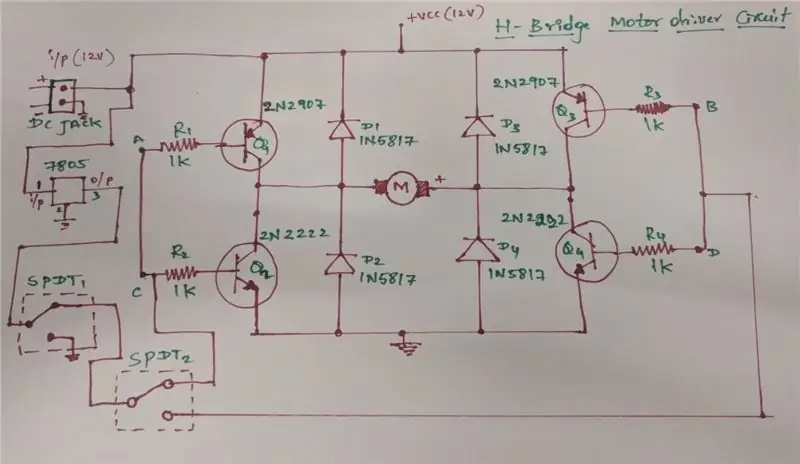 +VCC (12V)
H-Bridge Motor driver Circuit
i/p (12V)
+
DC JACK
2N2907
2N2907
R1
1K
A
Q1
D1
1N5817
D3
1N5817
Q3
R3
1K
B
7805
1
i/p
2
o/p
3
M
+
2N2222
2N2222
R2
1K
C
Q2
D2
1N5817
D4
1N5817
Q4
R4
1K
D
SPDT1
SPDT2